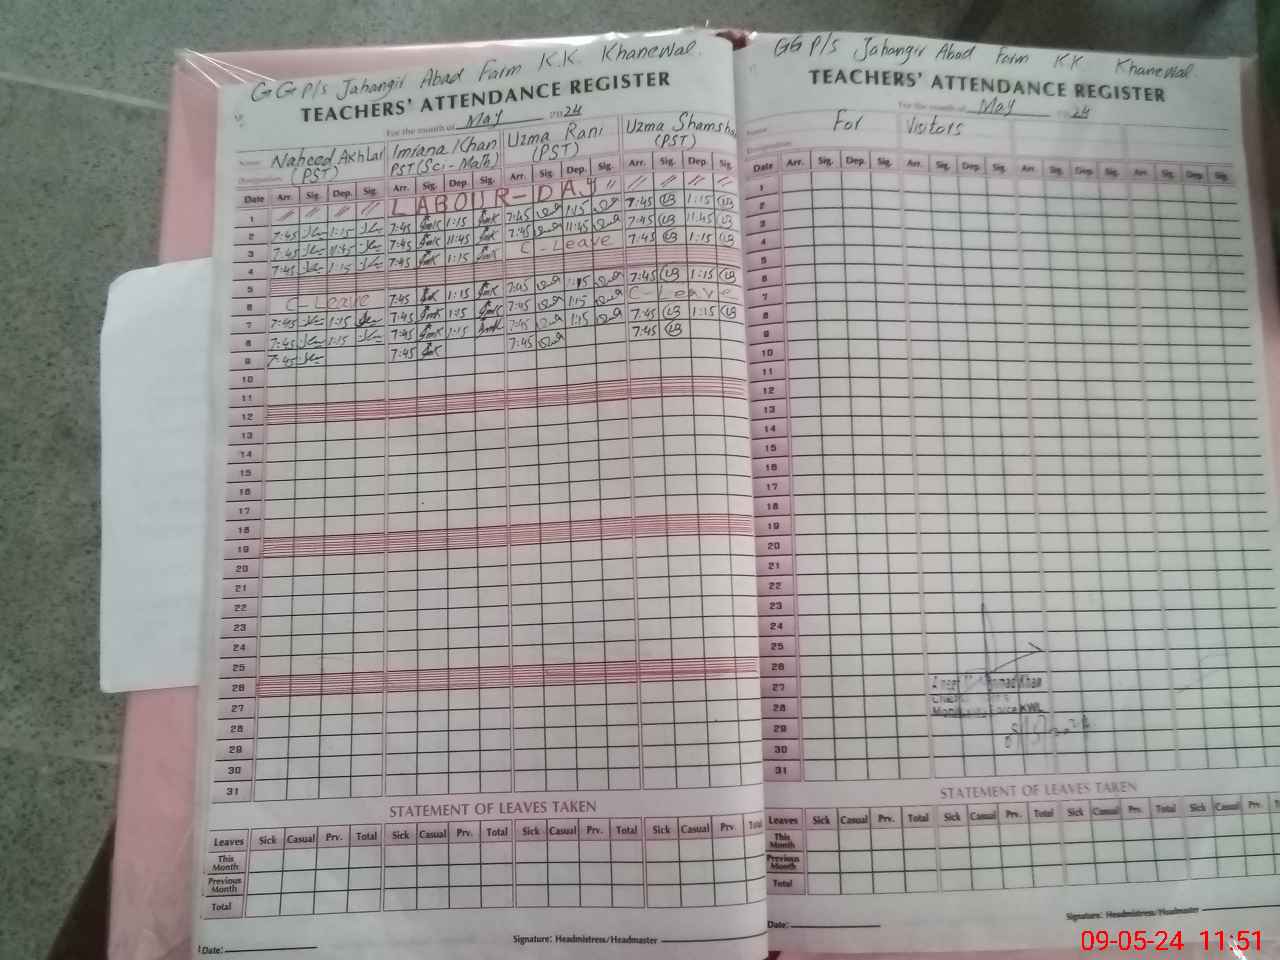 GGP/s Jahangir Abad Farm K.K. Khanewal.
TEACHERS' ATTENDANCE REGISTER
For the month of May 2024
Name Naheed Akhtar Imrana Khan Uzma Rani Uzma Shamsha
Designation (PST) PST (Sci-Math) (PST) (PST)
Date Arr. Sig. Dep. Sig. Arr. Sig. Dep. Sig. Arr. Sig. Dep. Sig. Arr. Sig. Dep. Sig.
1 LABOUR-DAY
2 7:45 1:15 7:45 1:15 7:45 1:15 7:45 1:15
3 7:45 11:45 7:45 11:45 7:45 11:45 7:45 11:45
4 7:45 1:15 7:45 1:15 C-Leave 7:45 1:15
5
6 C-Leave 7:45 1:15 7:45 1:15 7:45 1:15
7 7:45 1:15 7:45 1:15 7:45 1:15 C-Leave
8 7:45 1:15 7:45 1:15 7:45 1:15 7:45 1:15
9 7:45 7:45 7:45 7:45
10
11
12
13
14
15
16
17
18
19
20
21
22
23
24
25
26
27
28
29
30
31
STATEMENT OF LEAVES TAKEN
Leaves Sick Casual Prv. Total Sick Casual Prv. Total Sick Casual Prv. Total Sick Casual Prv. Total
This Month
Previous Month
Total
Date:
Signature: Headmistress/Headmaster
GGP/s Jahangir Abad Farm KK Khanewal.
TEACHERS' ATTENDANCE REGISTER
For the month of May 2024
Name For Visitors
Designation
Date Arr. Sig. Dep. Sig. Arr. Sig. Dep. Sig. Arr. Sig. Dep. Sig. Arr. Sig. Dep. Sig.
1
2
3
4
5
6
7
8
9
10
11
12
13
14
15
16
17
18
19
20
21
22
23
24
25
26
27
28
29
30
31
Khan
KWL
STATEMENT OF LEAVES TAKEN
Leaves Sick Casual Prv. Total Sick Casual Prv. Total Sick Casual Prv. Total Sick Casual Prv. Total
This Month
Previous Month
Total
Date:
Signature: Headmistress/Headmaster
09-05-24 11:51